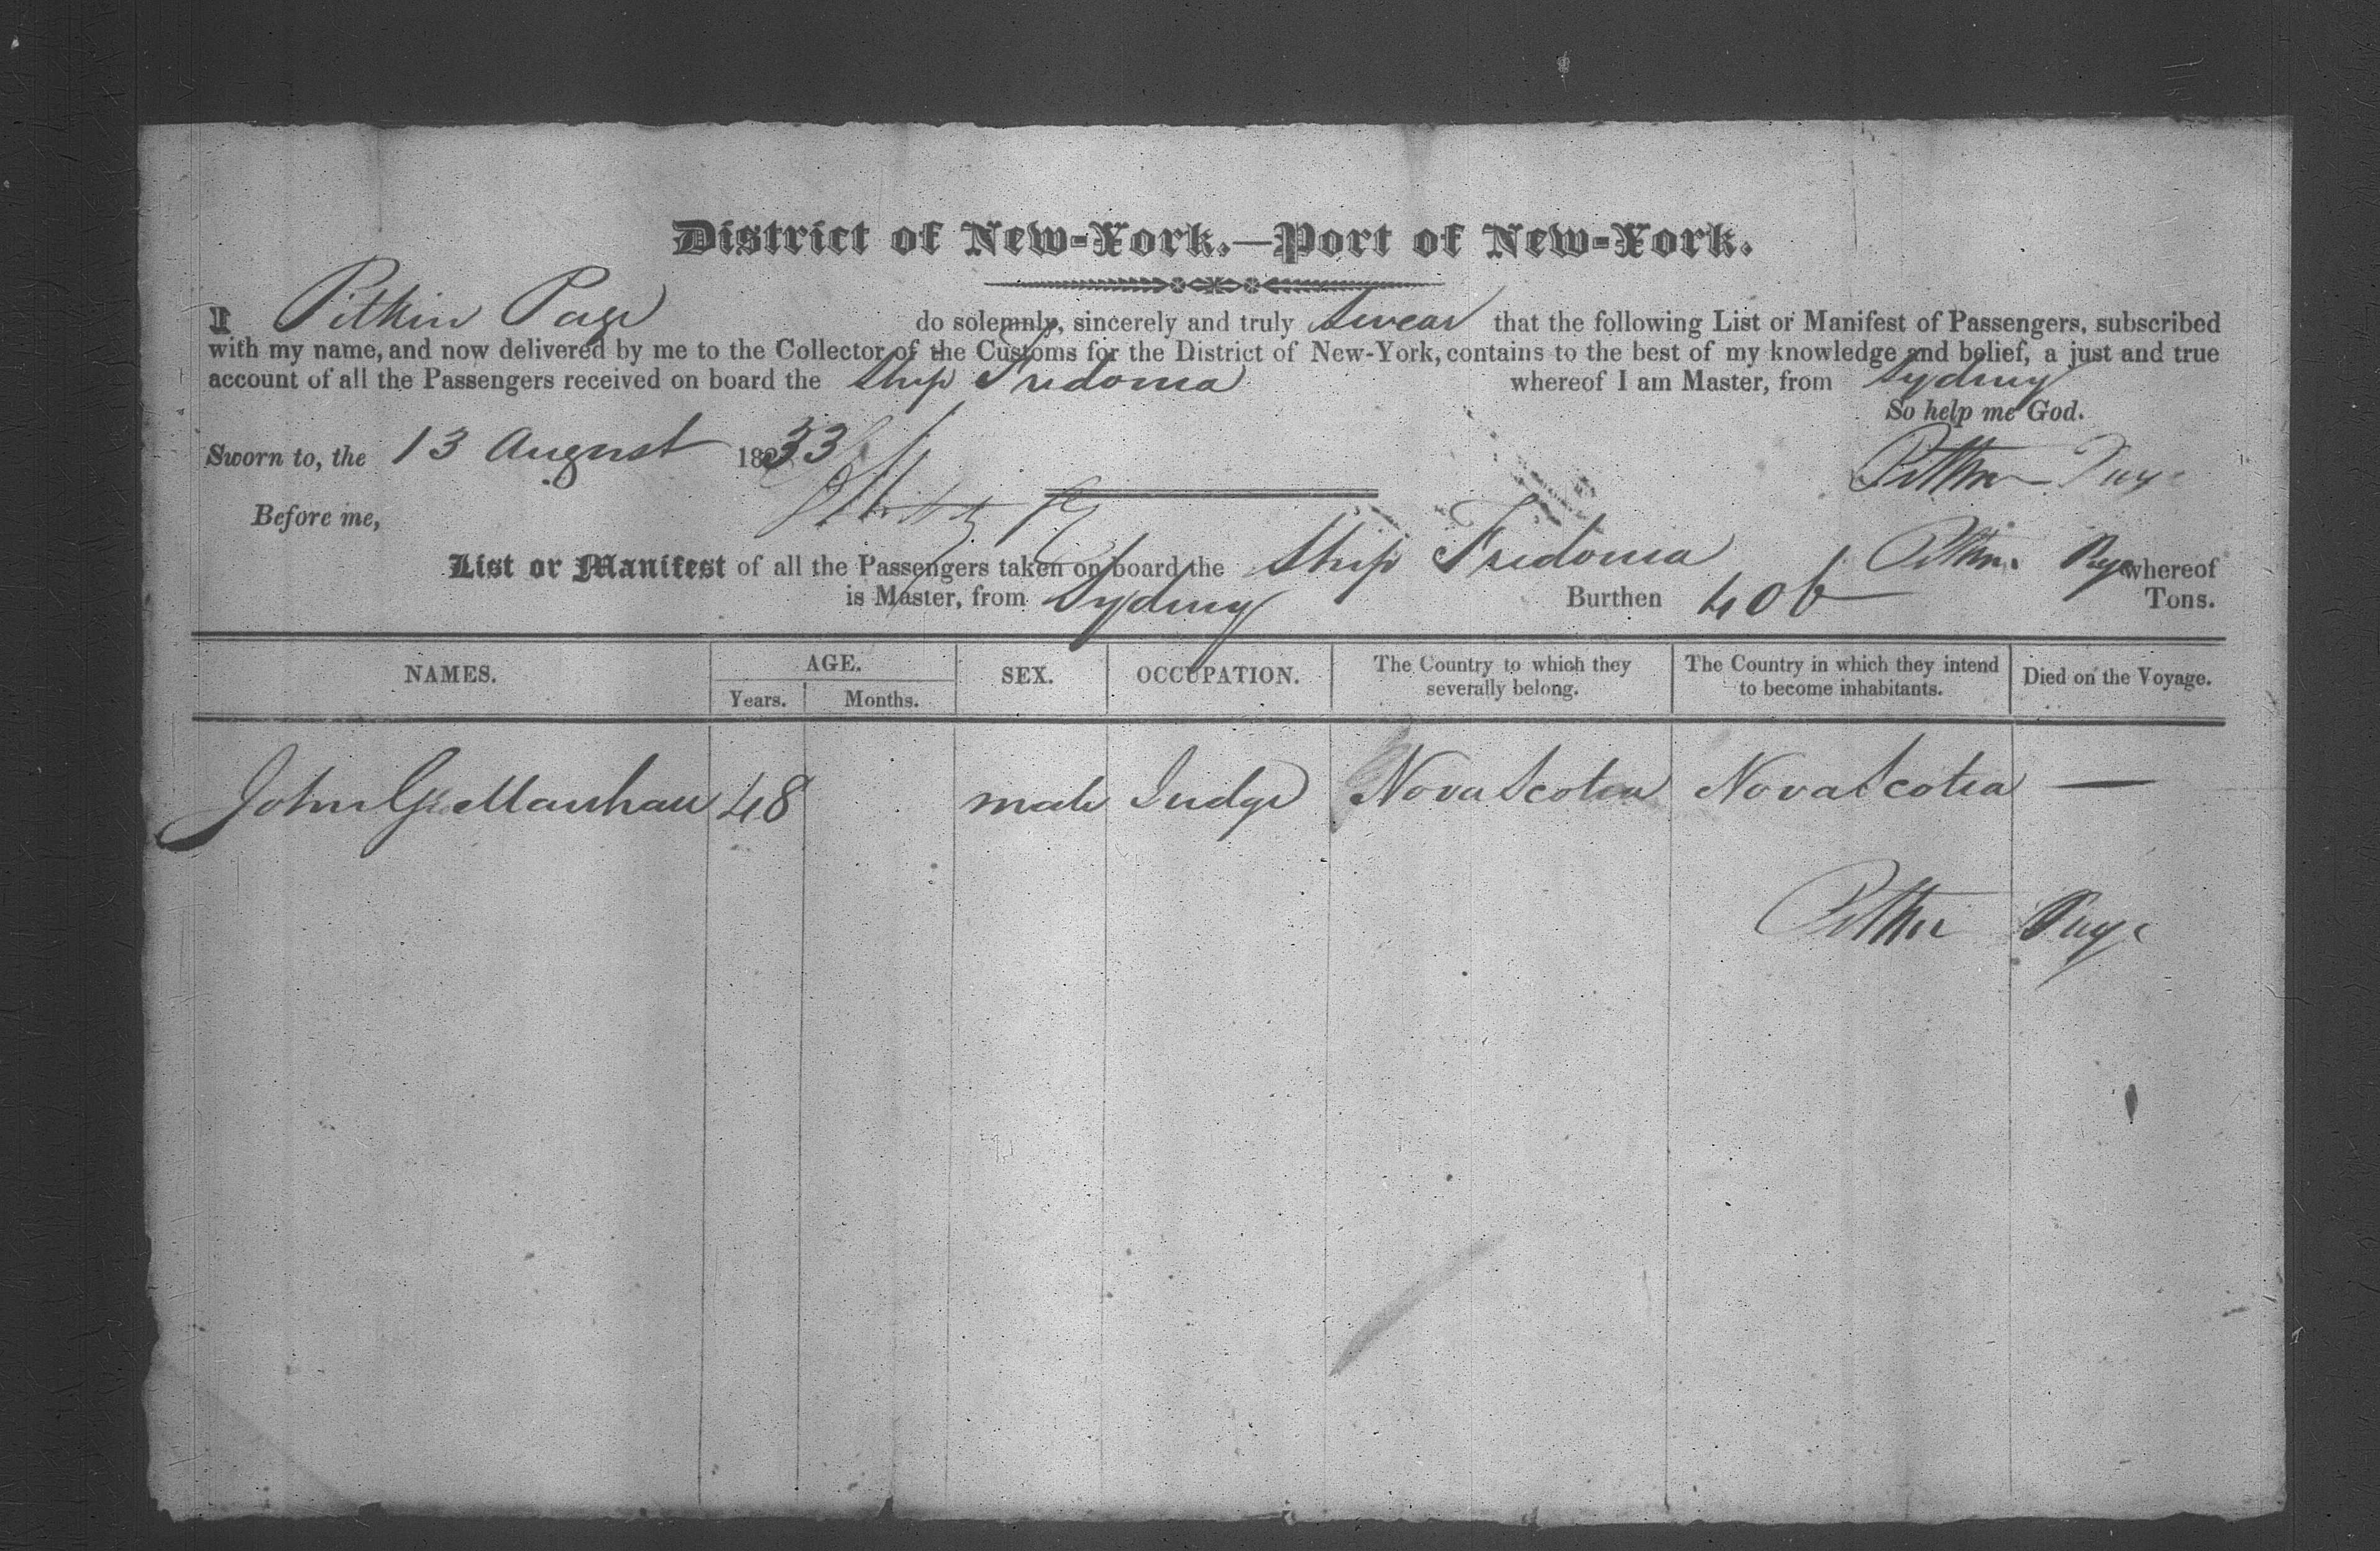 District of New-York.—Port of New-York.
I Pitkin Page do solemnly, sincerely and truly swear that the following List or Manifest of Passengers, subscribed
with my name, and now delivered by me to the Collector of the Customs for the District of New-York, contains to the best of my knowledge and belief, a just and true
account of all the Passengers received on board the Ship Fredonia whereof I am Master, from Sydney
So help me God.
Sworn to, the 13 August 1833
Pitkin Page
Before me,
List or Manifest of all the Passengers taken on board the Ship Fredonia Pitkin Page whereof
is Master, from Sydney Burthen 406 Tons.
NAMES. AGE. SEX. OCCUPATION. The Country to which they severally belong. The Country in which they intend to become inhabitants. Died on the Voyage.
Years. Months.
John G. Marshall 48 male Judge Nova Scotia Nova Scotia —
Pitkin Page